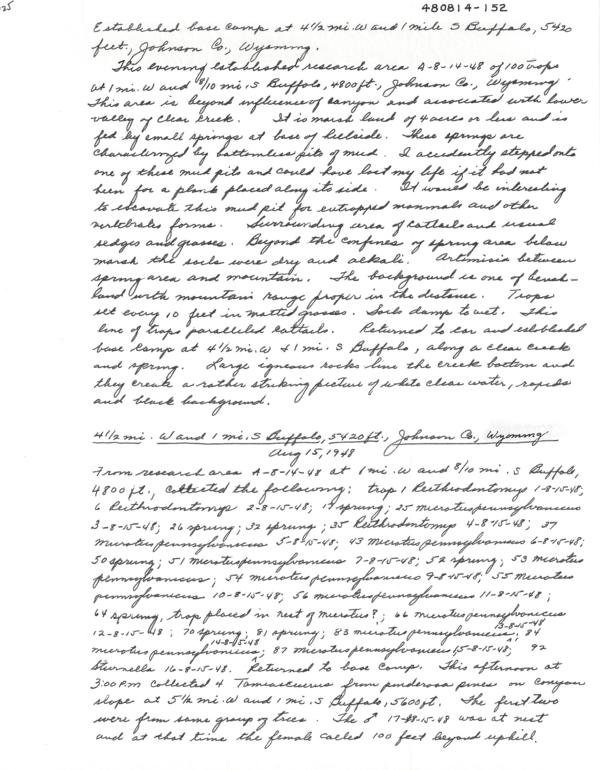 25
480814-152
Established base camp at 4 1/2 mi. W and 1 mile S Buffalo, 5420
feet, Johnson Co., Wyoming.
This evening established research area A-8-14-48 of 100 traps
at 1 mi. W and 8/10 mi. S Buffalo, 4800 ft., Johnson Co., Wyoming.
This area is beyond influence of canyon and associated with lower
valley of Clear Creek. It is marsh land of 4 acres or less and is
fed by small springs at base of hillside. These springs are
characterized by bottomless pits of mud. I accidently stepped onto
one of these mud pits and could have lost my life if it had not
been for a plank placed along its side. It would be interesting
to excavate this mud pit for entrapped mammals and other
vertebrates forms. Surrounding area of cattails and usual
sedges and grasses. Beyond the confines of spring area below
marsh the soils were dry and alkali. Artimisia between
spring area and mountain. The background is one of bench-
land with mountain range proper in the distance. Traps
set every 10 feet in matted grasses. Soils damp to wet. This
line of traps paralleled cattails. Returned to car and established
base camp at 4 1/2 mi. W & 1 mi. S Buffalo, along a clear creek
and spring. Large igneous rocks line the creek bottom and
they create a rather striking picture of white clear water, rapids
and black background.
4 1/2 mi. W and 1 mi. S Buffalo, 5420 ft., Johnson Co., Wyoming
Aug 15, 1948
From research area A-8-14-48 at 1 mi. W and 8/10 mi. S Buffalo,
4800 ft., collected the following: trap 1 Reithrodontomys 1-8-15-48;
6 Reithrodontomys 2-8-15-48; 19 sprung; 25 microtus pennsylvanicus
3-8-15-48; 26 sprung; 32 sprung; 35 Reithrodontomys 4-8-15-48; 37
microtus pennsylvanicus 5-8-15-48; 43 microtus pennsylvanicus 6-8-15-48;
50 sprung; 51 microtus pennsylvanicus 7-8-15-48; 52 sprung; 53 microtus
pennsylvanicus; 54 microtus pennsylvanicus 9-8-15-48; 55 microtus
pennsylvanicus 10-8-15-48; 56 microtus pennsylvanicus 11-8-15-48;
64 sprung, trap placed in nest of microtus?; 66 microtus pennsylvanicus
12-8-15-48; 70 sprung; 81 sprung; 83 microtus pennsylvanicus 13-8-15-48; 84
microtus pennsylvanicus 14-8-15-48; 87 microtus pennsylvanicus 15-8-15-48; 92
Sturnella 16-8-15-48. Returned to base camp. This afternoon at
3:00 P.M. collected 4 Tamiasciurus from ponderosa pines on canyon
slope at 5 1/2 mi. W and 1 mi. S Buffalo, 5600 ft. The first two
were from same group of trees. The ♂ 17-8-15-48 was at nest
and at that time the female called 100 feet beyond uphill.